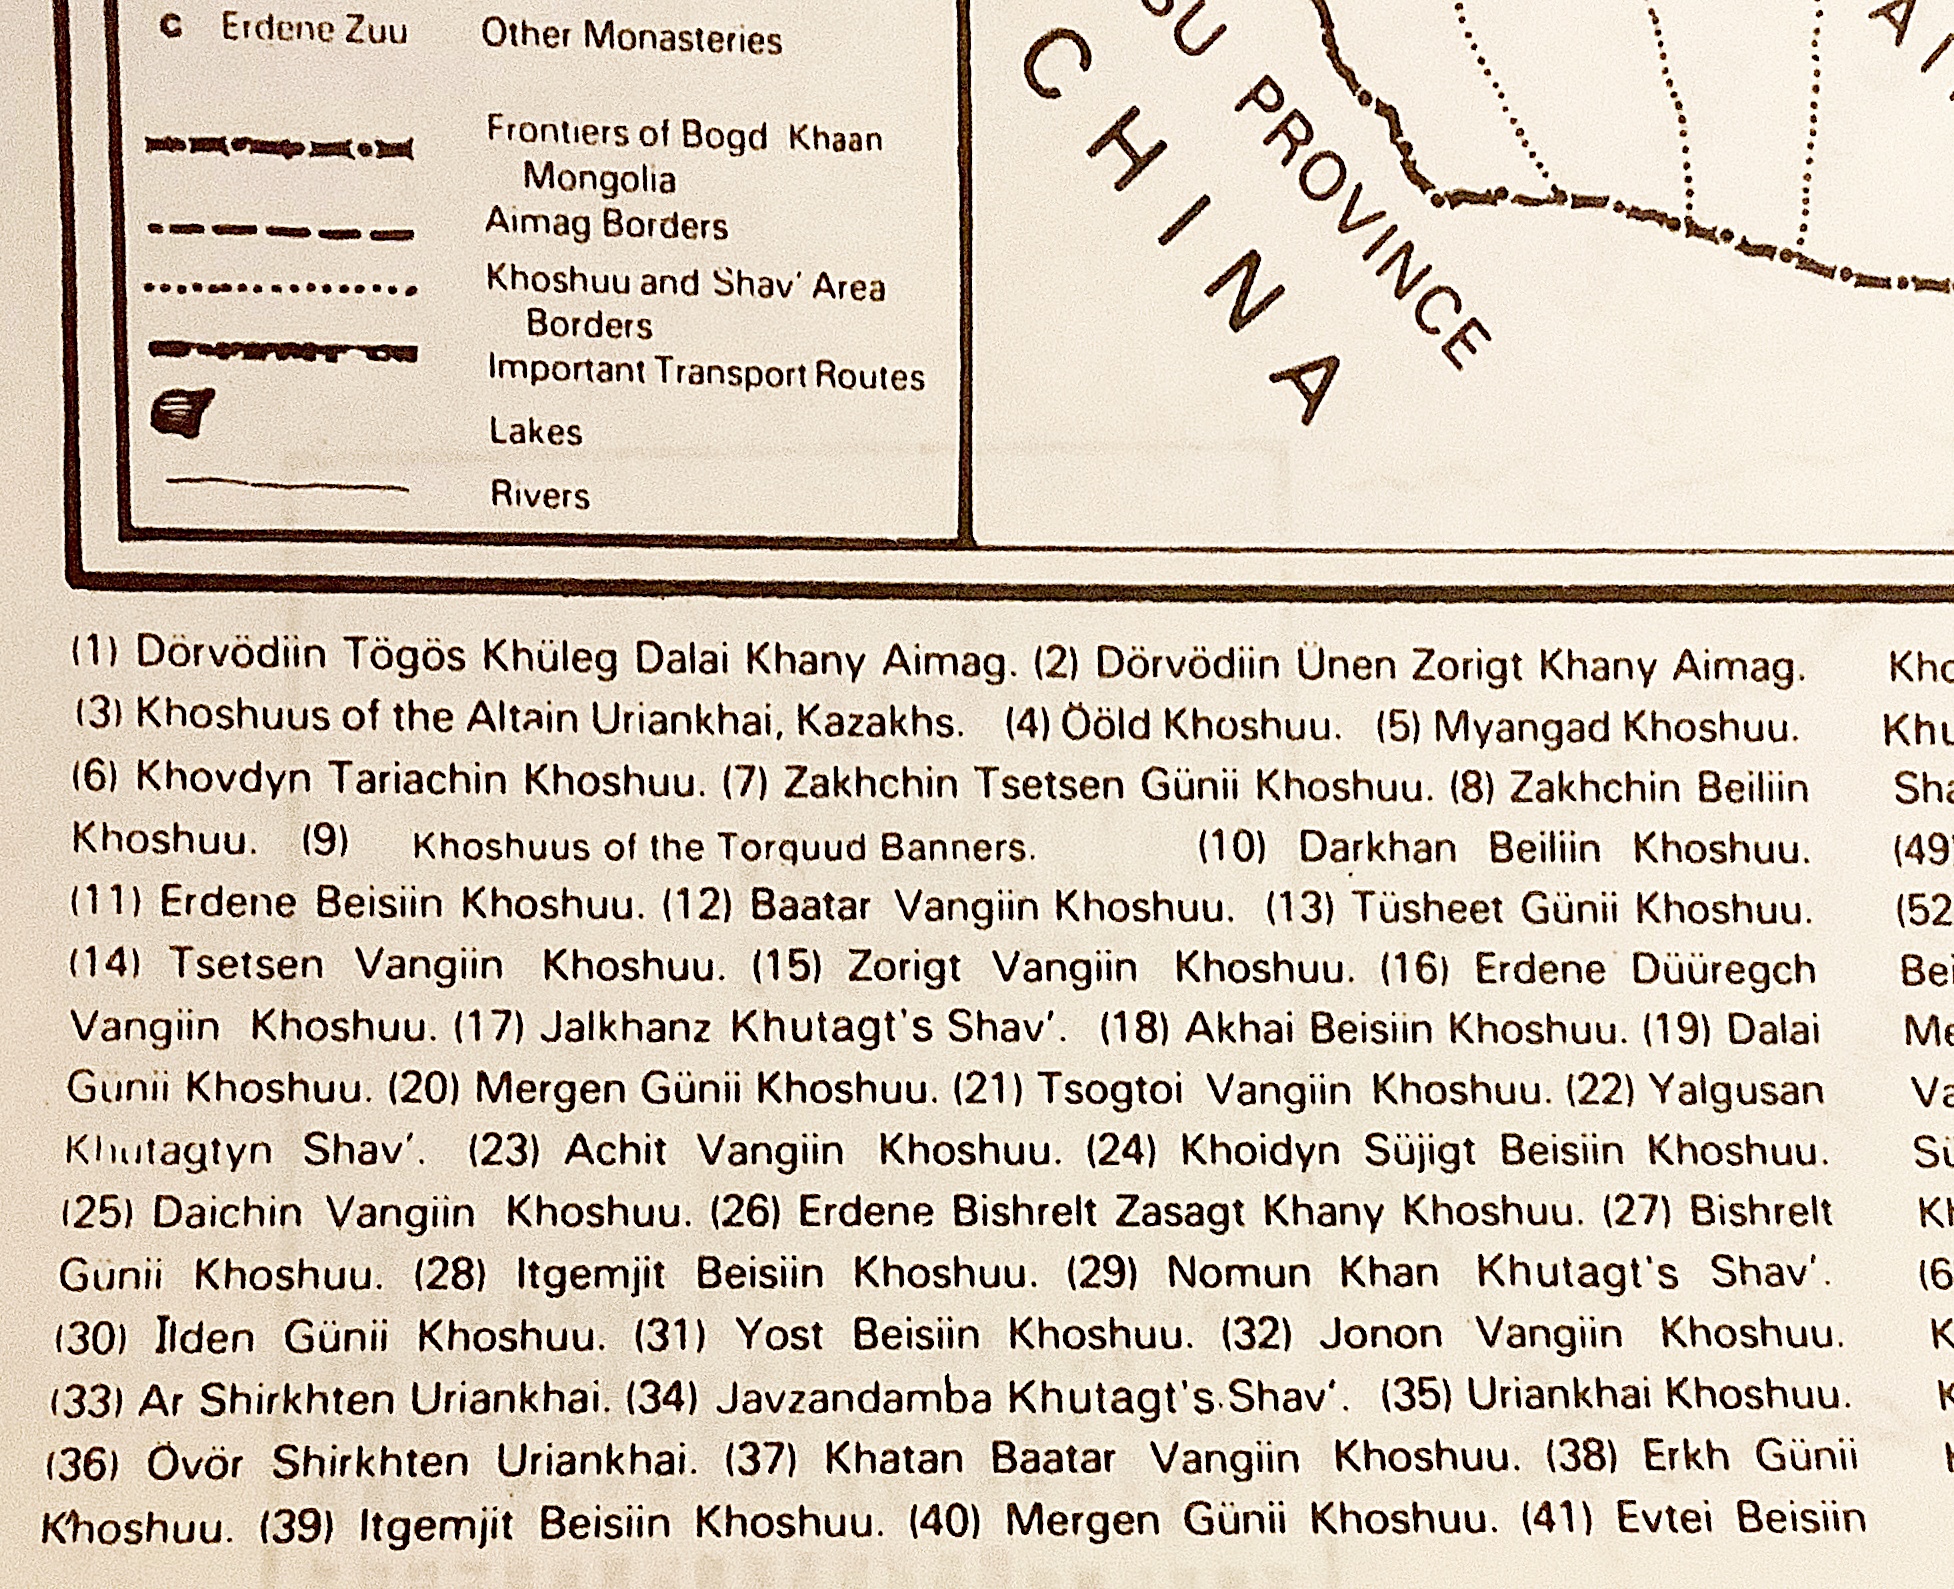 c Erdene Zuu Other Monasteries
Frontiers of Bogd Khaan
Mongolia
Aimag Borders
Khoshuu and Shav' Area
Borders
Important Transport Routes
Lakes
Rivers
PROVINCE
CHINA
(1) Dörvödiin Tögös Khüleg Dalai Khany Aimag. (2) Dörvödiin Ünen Zorigt Khany Aimag.
(3) Khoshuus of the Altain Uriankhai, Kazakhs. (4) Ööld Khoshuu. (5) Myangad Khoshuu.
(6) Khovdyn Tariachin Khoshuu. (7) Zakhchin Tsetsen Günii Khoshuu. (8) Zakhchin Beiliin
Khoshuu. (9) Khoshuus of the Torguud Banners. (10) Darkhan Beiliin Khoshuu.
(11) Erdene Beisiin Khoshuu. (12) Baatar Vangiin Khoshuu. (13) Tüsheet Günii Khoshuu.
(14) Tsetsen Vangiin Khoshuu. (15) Zorigt Vangiin Khoshuu. (16) Erdene Düüregch
Vangiin Khoshuu. (17) Jalkhanz Khutagt's Shav'. (18) Akhai Beisiin Khoshuu. (19) Dalai
Günii Khoshuu. (20) Mergen Günii Khoshuu. (21) Tsogtoi Vangiin Khoshuu. (22) Yalgusan
Khutagtyn Shav'. (23) Achit Vangiin Khoshuu. (24) Khoidyn Süjigt Beisiin Khoshuu.
(25) Daichin Vangiin Khoshuu. (26) Erdene Bishrelt Zasagt Khany Khoshuu. (27) Bishrelt
Günii Khoshuu. (28) Itgemjit Beisiin Khoshuu. (29) Nomun Khan Khutagt's Shav'.
(30) Ilden Günii Khoshuu. (31) Yost Beisiin Khoshuu. (32) Jonon Vangiin Khoshuu.
(33) Ar Shirkhten Uriankhai. (34) Javzandamba Khutagt's Shav'. (35) Uriankhai Khoshuu.
(36) Övör Shirkhten Uriankhai. (37) Khatan Baatar Vangiin Khoshuu. (38) Erkh Günii
Khoshuu. (39) Itgemjit Beisiin Khoshuu. (40) Mergen Günii Khoshuu. (41) Evtei Beisiin